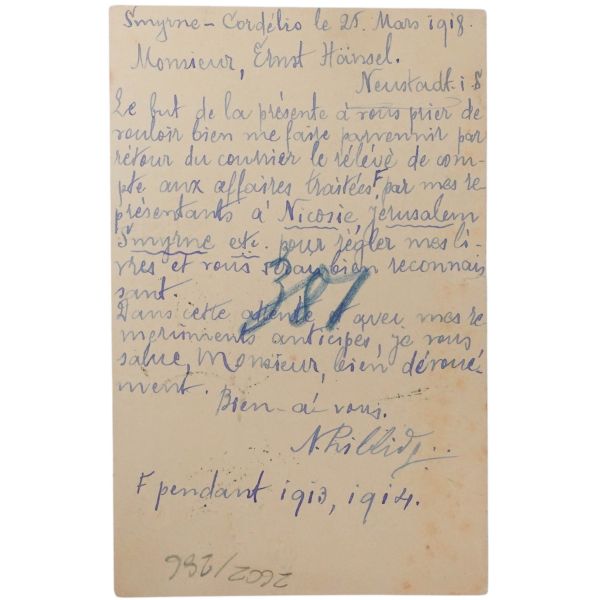 Smyrne - Cordélio le 25. Mars 1918.
Monsieur, Ernst Hänsel.
Neustadt. i. S
Le but de la présente à vous prier de
vouloir bien me faire parvennir par
rétour du courrier le rélévè de com-
pte aux affaires traitées, F par mes re
présentants à Nicosie, Jerusalem
Smyrne etc. pour régler mes li-
vres et vous serai bien reconnais
sant.
Dans cette attente et avec mes re
merciments anticipés, je vous
salue, Monsieur, bien dévoué
ment.
Bien-à vous.
F pendant 1913, 1914.
2602/286